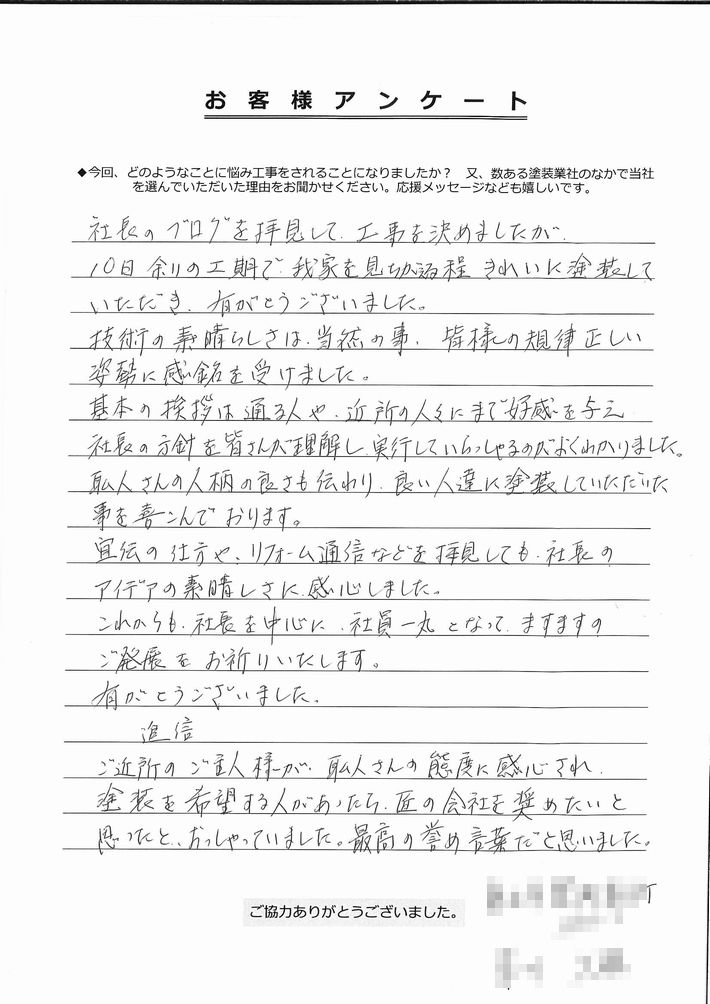 お客様アンケート
◆今回、どのようなことに悩み工事をされることになりましたか？　又、数ある塗装業社のなかで当社
を選んでいただいた理由をお聞かせください。応援メッセージなども嬉しいです。
社長のブログを拝見して、工事を決めましたが、
10日余りの工期で、我家を見ちがえる程きれいに塗装して
いただき、有がとうございました。
技術の素晴らしさは、当然の事、皆様の規律正しい
姿勢に感銘を受けました。
基本の挨拶は通る人や、近所の人々にまで好感を与え
社長の方針を皆さんが理解し、実行していらっしゃるのがよくわかりました。
職人さんの人柄の良さも伝わり、良い人達に塗装していただいた
事を喜こんでおります。
宣伝の仕方や、リフォーム通信などを拝見しても、社長の
アイデアの素晴しさに、感心しました。
これからも、社長を中心に、社員一丸となって、ますますの
ご発展をお祈りいたします。
有がとうございました。
追信
ご近所のご主人様が、職人さんの態度に感心され、
塗装を希望する人があったら、匠の会社を奨めたいと
思ったと、おっしゃっていました。最高の誉め言葉だと思いました。
ご協力ありがとうございました。